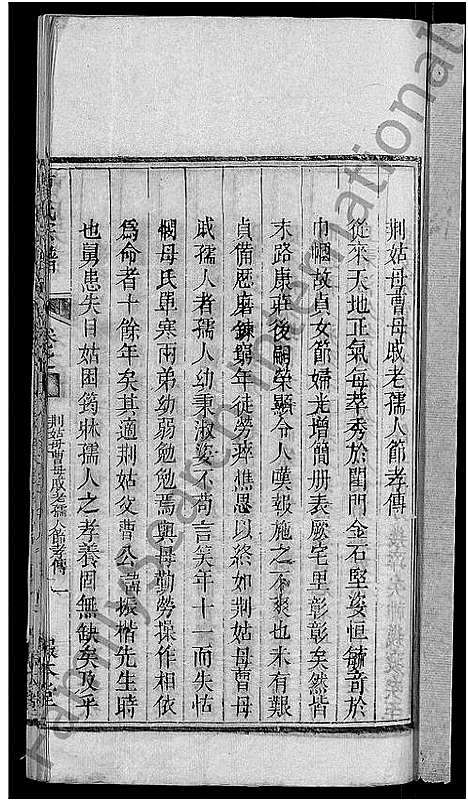 荆姑母曹母戚老孺人節孝傳
從來天地正氣每萃秀於閨門金石堅姿恒毓竒於
巾幗故貞女節婦光增簡册表厥宅里彰彰矣然皆
末路康莊後嗣榮顯令人嘆報施之不爽也未有艱
貞備歷磨鍊窮年徒勞瘁樵恩以終如荆姑母曹母
戚孺人者孺人幼秉淑姿不苟言笑年十一而失怙
惸母氏單寒兩弟幼弱勉勉焉與母勤勞操作相依
為命者十餘年矣其適荆姑丈曹公諱振楷先生時
也舅患失目姑困篤牀孺人之孝養固無缺矣及乎
氏宗譜
荆姑母曹母戚老孺人節孝傳 一
FamilySearch International